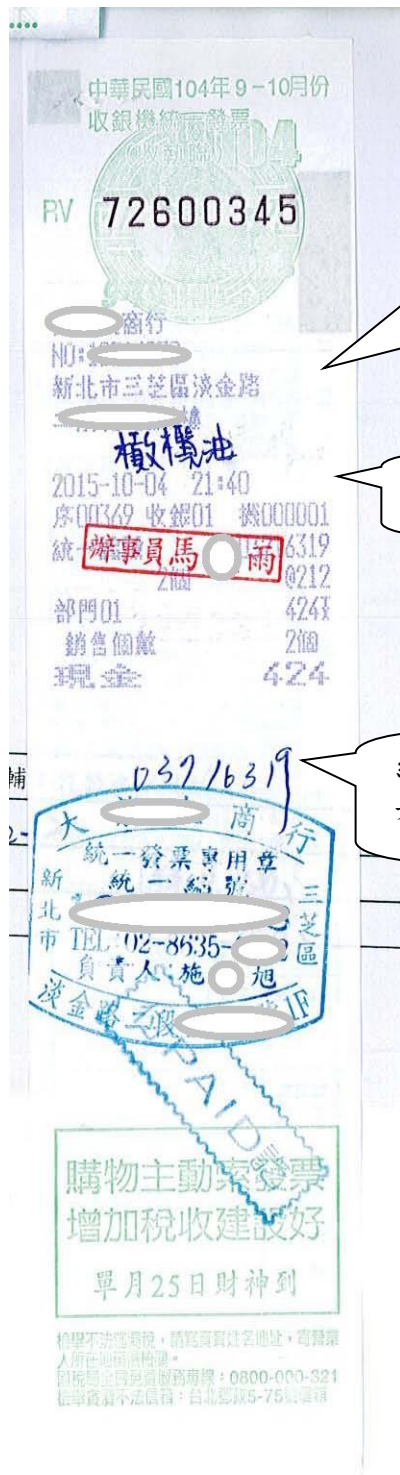 中華民國104年9-10月份
收銀機統一發票
收執聯
104
RV 72600345
商行
NO:
新北市三芝區淡金路
橄欖油
2015-10-04 21:40
序00369 收銀01 機000001
統一 6319
辦事員馬 雨
2個 @212
部門01 424
銷售個數 2個
現金 424
輔
03716319
大 商行
統一發票專用章
統一編號
新北市 三芝區
TEL:02-8635- 2
負責人:施 旭
淡金路二段 1F
PAID
購物主動索發票
增加稅收建設好
單月25日財神到
檢舉不法逃漏稅,請寫真實姓名地址,寄營業
人所在地稽徵機關。
國稅局全國免費服務專線:0800-000-321